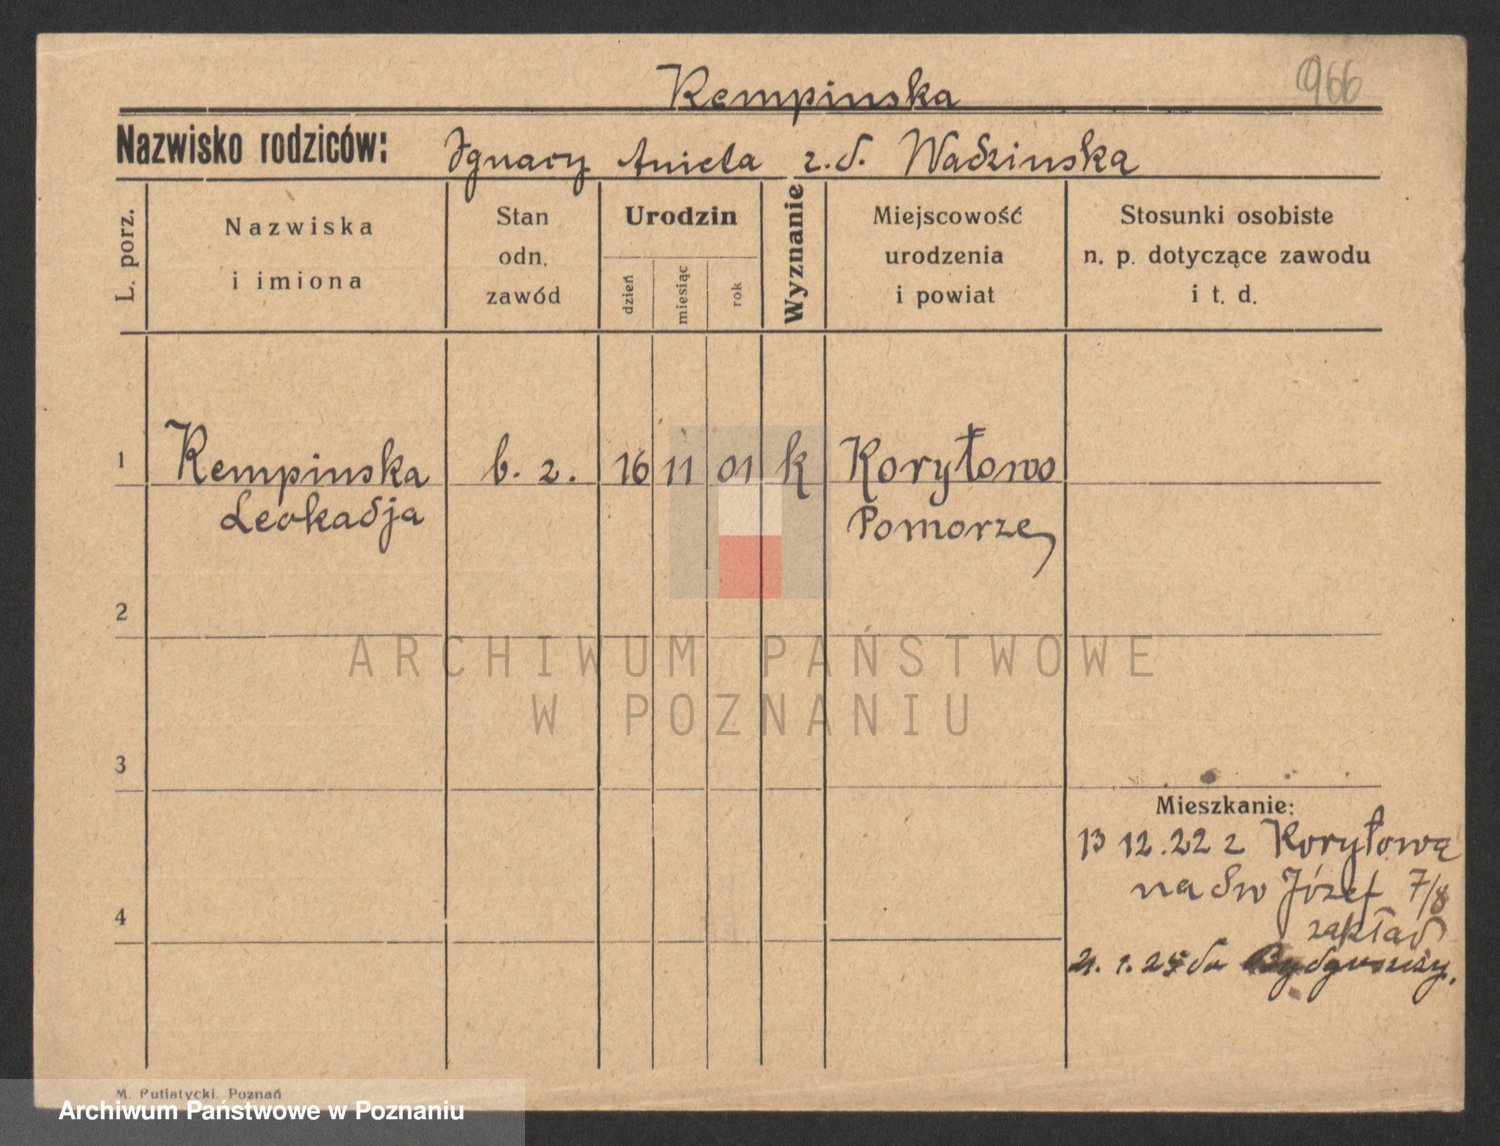 966
Kempinska
Nazwisko rodziców: Ignacy Aniela z.d. Wadzinska
L. porz.
Nazwiska
i imiona
Stan
odn.
zawód
Urodzin
dzień
miesiąc
rok
Wyznanie
Miejscowość
urodzenia
i powiat
Stosunki osobiste
n. p. dotyczące zawodu
i t. d.
1 Kempinska b. z. 16 11 01 k Koryłowo
Leokadja Pomorze
2
ARCHIWUM PAŃSTWOWE
W POZNANIU
3
Mieszkanie:
13 12.22 z Koryłowa
na Św Józef 7/8
zakład
4
21. 1. 25 do Bydgoszczy.
M. Putiatycki. Poznań
Archiwum Państwowe w Poznaniu